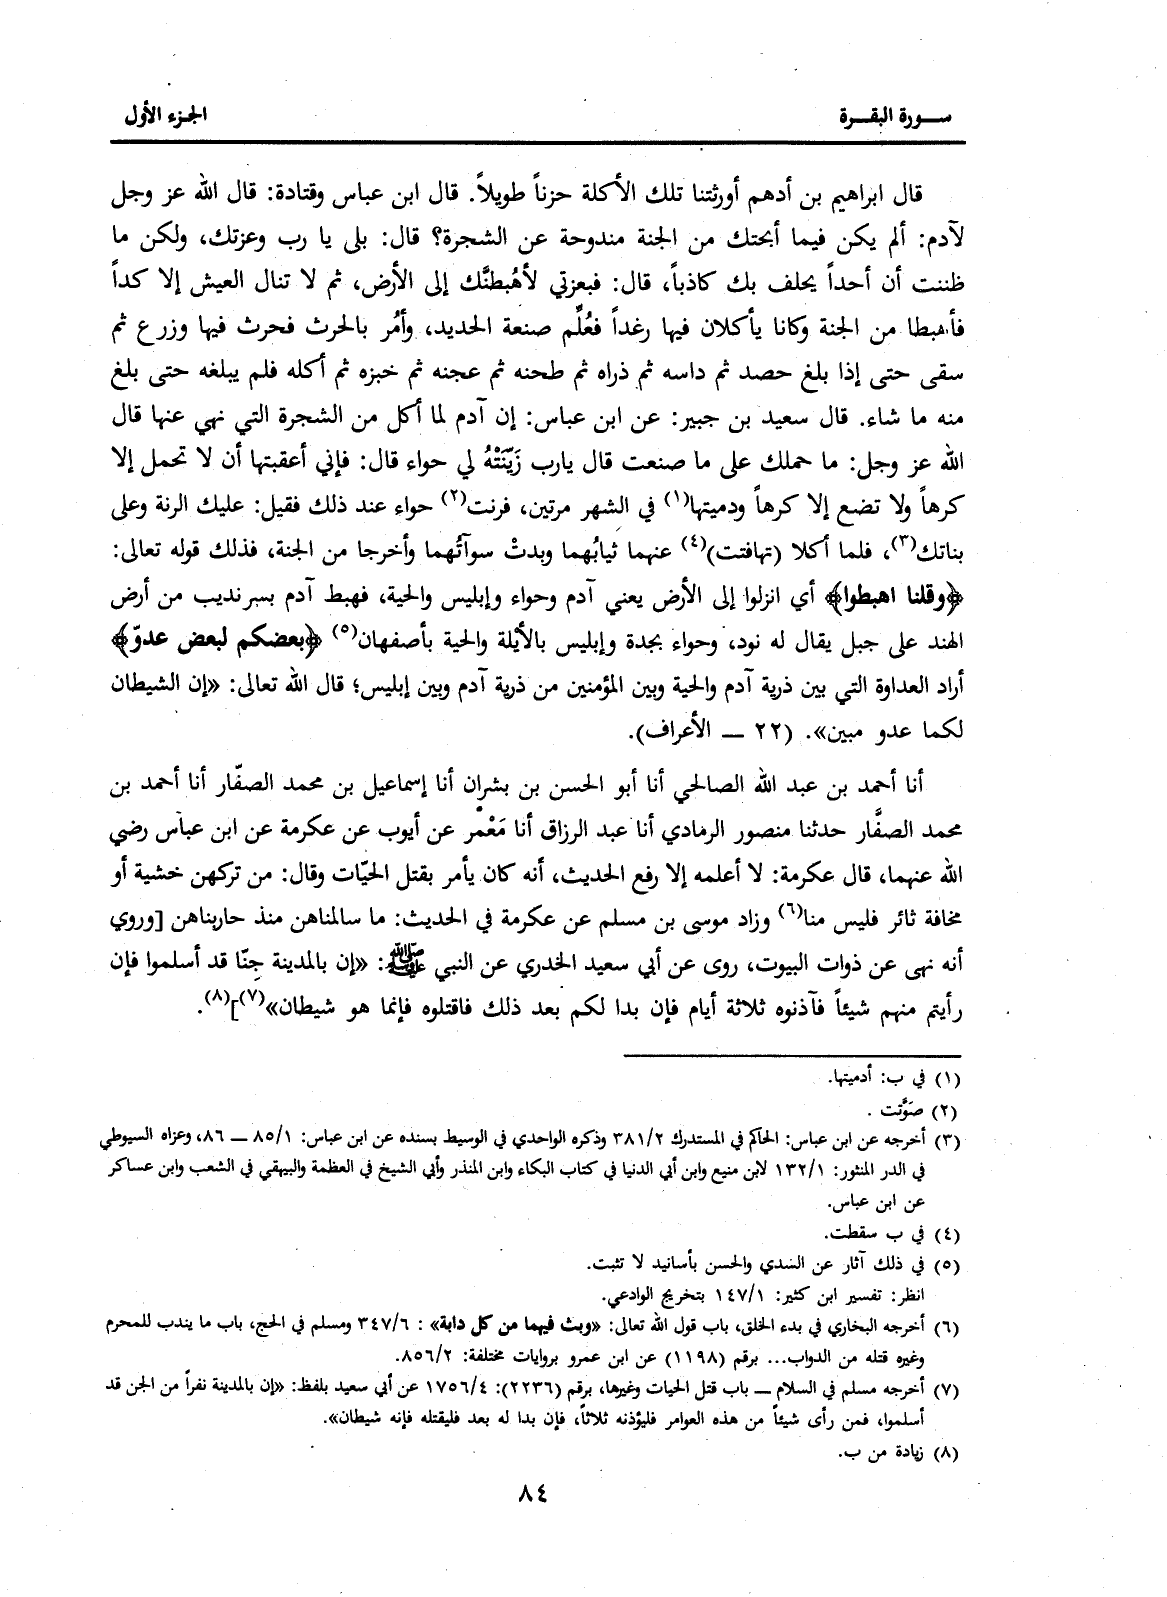 سورة البقرة
الجزء الأول
قال ابراهيم بن أدهم أورثتنا تلك الأكلة حزناً طويلاً. قال ابن عباس وقتادة: قال الله عز وجل
لآدم: ألم يكن فيما أبحتك من الجنة مندوحة عن الشجرة؟ قال: بلى يا رب وعزتك، ولكن ما
ظننت أن أحداً يحلف بك كاذباً، قال: فبعزتي لأهُبطنَّك إلى الأرض، ثم لا تنال العيش إلا كداً
فأهبطا من الجنة وكانا يأكلان فيها رغداً فعُلِّم صنعة الحديد، وأمُر بالحرث فحرث فيها وزرع ثم
سقى حتى إذا بلغ حصد ثم داسه ثم ذراه ثم طحنه ثم عجنه ثم خبزه ثم أكله فلم يبلغه حتى بلغ
منه ما شاء. قال سعيد بن جبير: عن ابن عباس: إن آدم لما أكل من الشجرة التي نهي عنها قال
الله عز وجل: ما حملك على ما صنعت قال يارب زَيَّنَتْهُ لي حواء قال: فإني أعقبتها أن لا تحمل إلا
كرهاً ولا تضع إلا كرهاً ودميتها(١) في الشهر مرتين، فرنت(٢) حواء عند ذلك فقيل: عليك الرنة وعلى
بناتك(٣)، فلما أكلا (تهافتت)(٤) عنهما ثيابُهما وبدتْ سوآتُهما وأخرجا من الجنة، فذلك قوله تعالى:
﴿وقلنا اهبطوا﴾ أي انزلوا إلى الأرض يعني آدم وحواء وإبليس والحية، فهبط آدم بسرنديب من أرض
الهند على جبل يقال له نود، وحواء بجدة وإبليس بالأيلة والحية بأصفهان(٥) ﴿بعضكم لبعض عدوّ﴾
أراد العداوة التي بين ذرية آدم والحية وبين المؤمنين من ذرية آدم وبين إبليس؛ قال الله تعالى: «إن الشيطان
لكما عدو مبين». (٢٢ ـــ الأعراف).
أنا أحمد بن عبد الله الصالحي أنا أبو الحسن بن بشران أنا إسماعيل بن محمد الصفّار أنا أحمد بن
محمد الصفَّار حدثنا منصور الرمادي أنا عبد الرزاق أنا مَعْمر عن أيوب عن عكرمة عن ابن عباس رضي
الله عنهما، قال عكرمة: لا أعلمه إلا رفع الحديث، أنه كان يأمر بقتل الحيّات وقال: من تركهن خشية أو
مخافة ثائر فليس منا(٦) وزاد موسى بن مسلم عن عكرمة في الحديث: ما سالمناهن منذ حاربناهن [وروي
أنه نهى عن ذوات البيوت، روى عن أبي سعيد الخدري عن النبي ﷺ: «إن بالمدينة جِنّا قد أسلموا فإن
رأيتم منهم شيئاً فآذنوه ثلاثة أيام فإن بدا لكم بعد ذلك فاقتلوه فإنما هو شيطان»(٧)](٨).
(١) في ب: أدميتها.
(٢) صَوَّتت .
(٣) أخرجه عن ابن عباس: الحاكم في المستدرك ٣٨١/٢ وذكره الواحدي في الوسيط بسنده عن ابن عباس: ٨٥/١ ـــ ٨٦، وعزاه السيوطي
في الدر المنثور: ١٣٢/١ لابن منيع وابن أبي الدنيا في كتاب البكاء وابن المنذر وأبي الشيخ في العظمة والبيهقي في الشعب وابن عساكر
عن ابن عباس.
(٤) في ب سقطت.
(٥) في ذلك آثار عن السدي والحسن بأسانيد لا تثبت.
انظر: تفسير ابن كثير: ١٤٧/١ بتخريج الوادعي.
(٦) أخرجه البخاري في بدء الخلق، باب قول الله تعالى: «وبث فيهما من كل دابة» : ٣٤٧/٦ ومسلم في الحج، باب ما يندب للمحرم
وغيره قتله من الدواب... برقم (١١٩٨) عن ابن عمرو بروايات مختلفة: ٨٥٦/٢.
(٧) أخرجه مسلم في السلام ـــ باب قتل الحيات وغيرها، برقم (٢٢٣٦): ١٧٥٦/٤ عن أبي سعيد بلفظ: «إن بالمدينة نفراً من الجن قد
أسلموا، فمن رأى شيئاً من هذه العوامر فليؤذنه ثلاثاً، فإن بدا له بعد فليقتله فإنه شيطان».
(٨) زيادة من ب.
٨٤